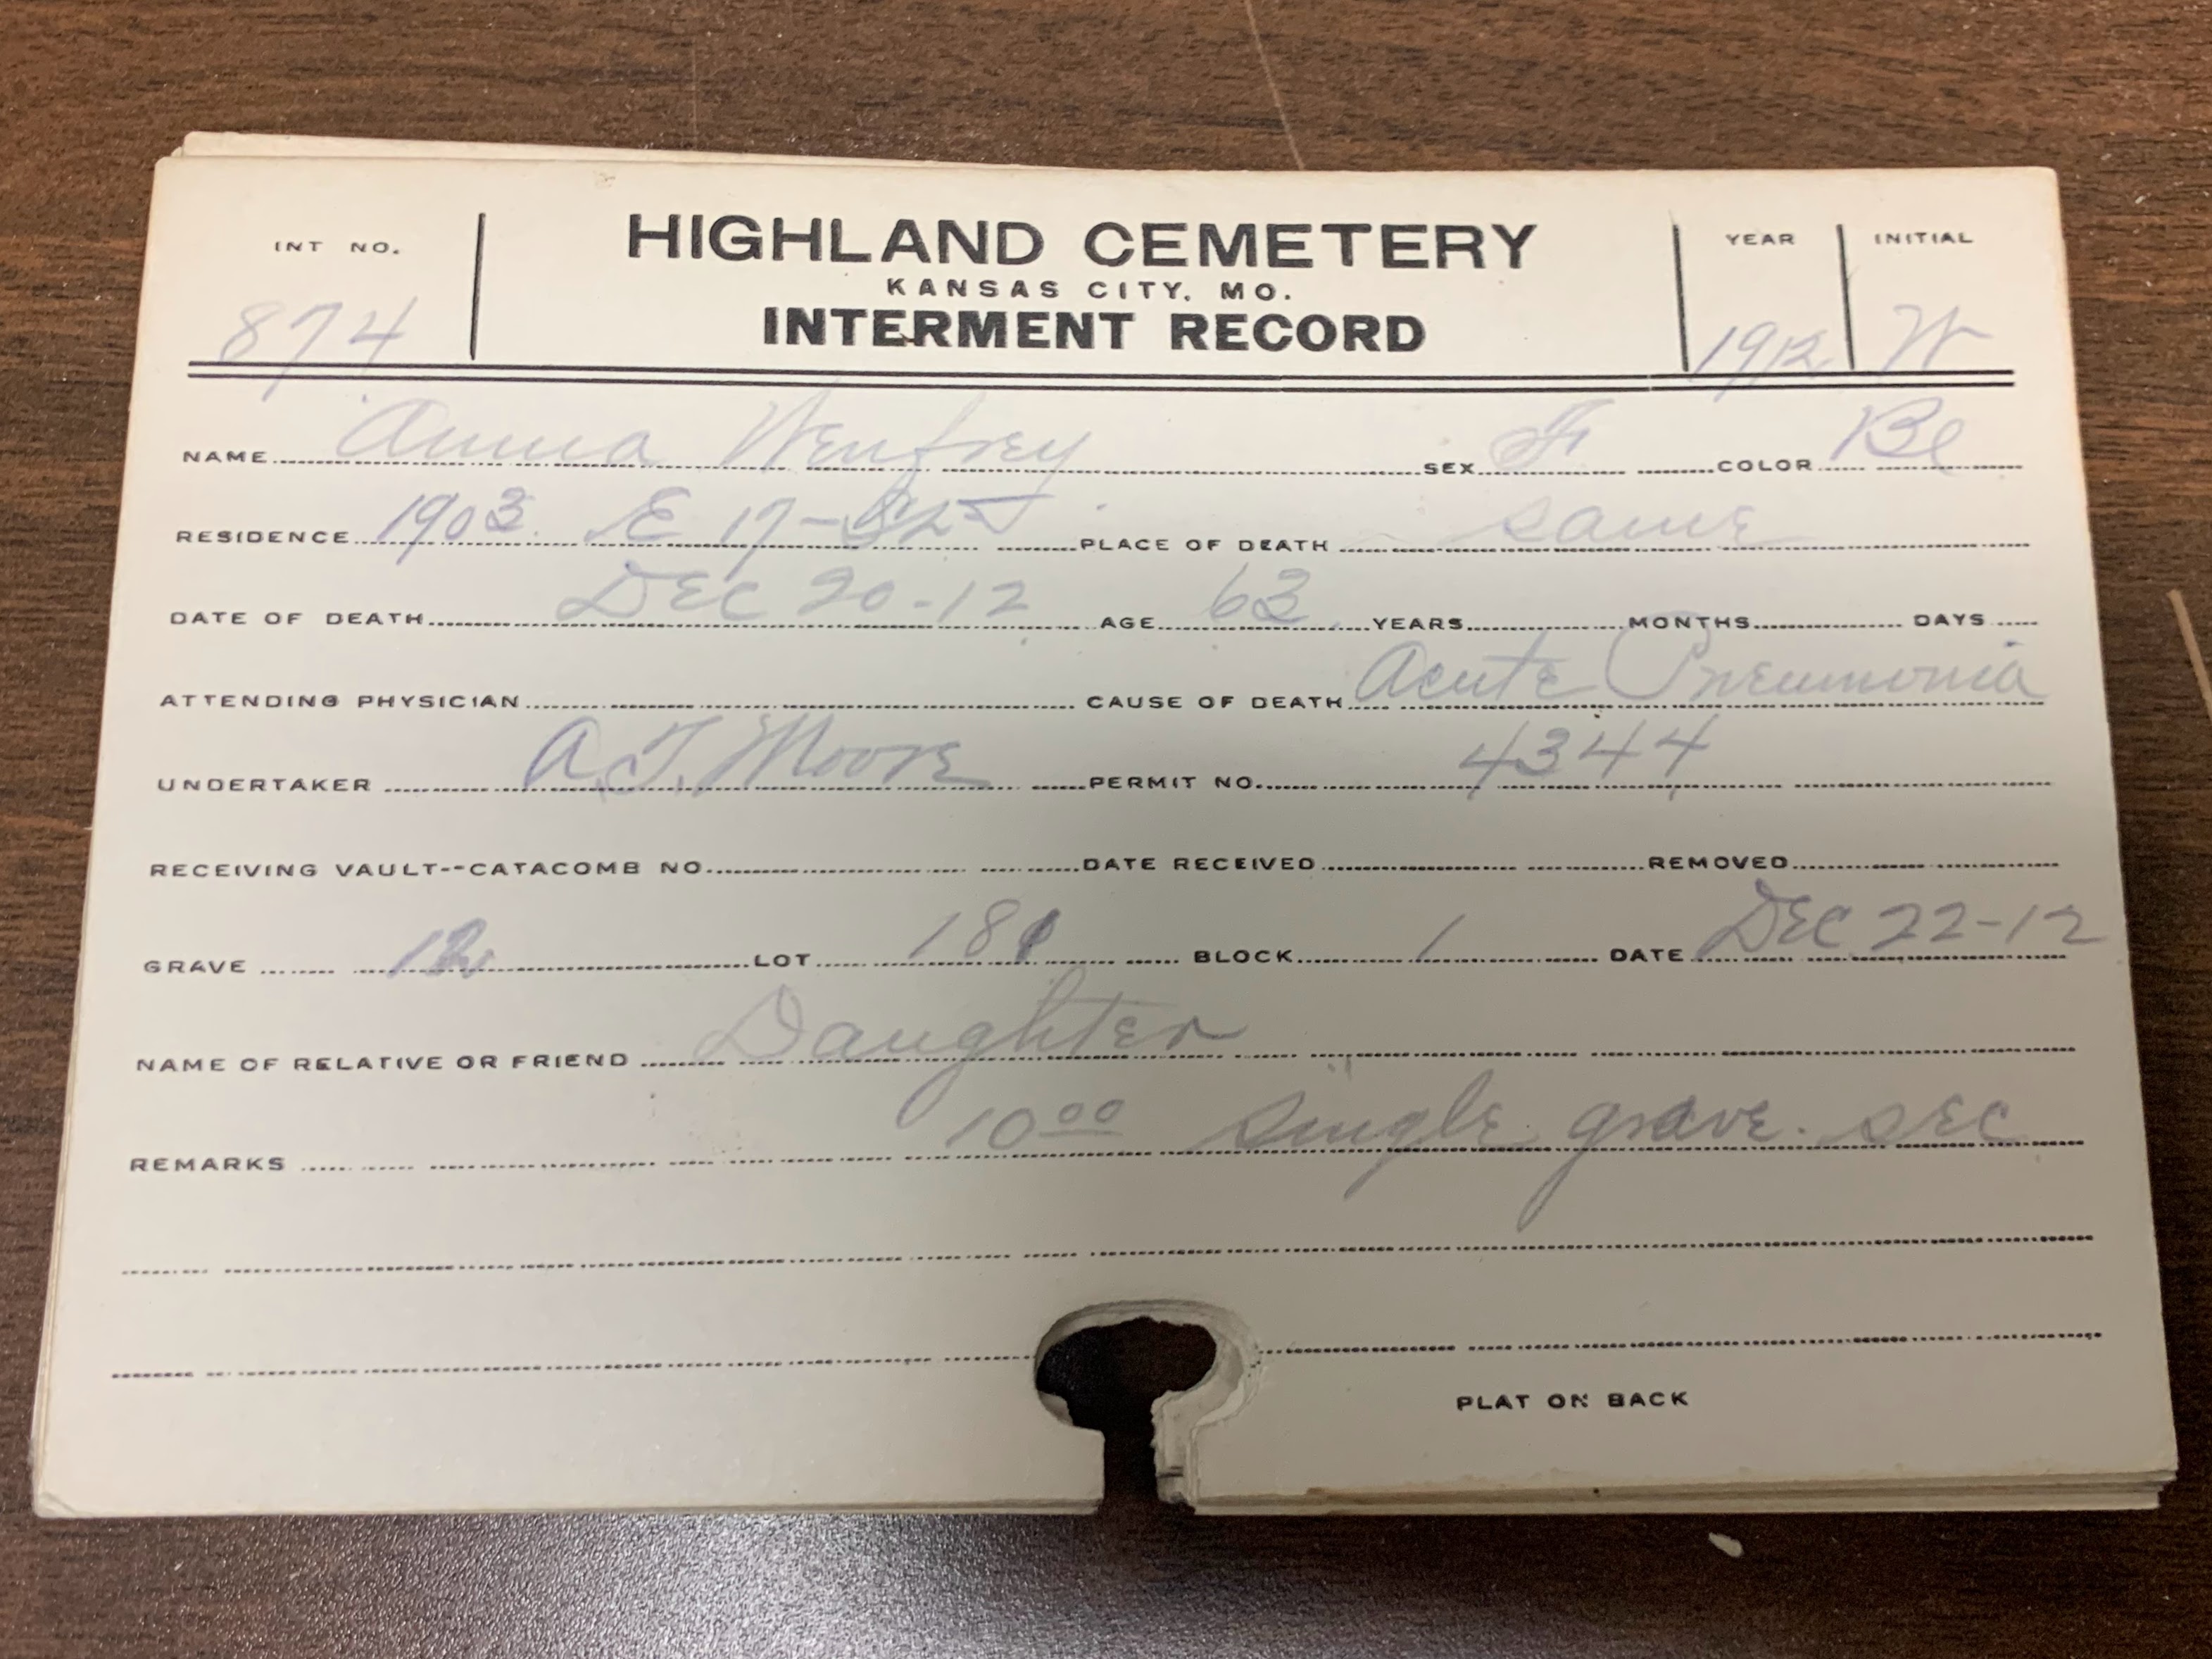 INT NO. HIGHLAND CEMETERY YEAR INITIAL
KANSAS CITY, MO.
874 INTERMENT RECORD 1912 W
NAME Anna Wenfrey SEX F. COLOR Bl
RESIDENCE 1903 E 17-St PLACE OF DEATH same
DATE OF DEATH DEC 20-12 AGE 63 YEARS MONTHS DAYS
ATTENDING PHYSICIAN CAUSE OF DEATH Acute Pneumonia
UNDERTAKER A.T. Moore PERMIT NO. 4344
RECEIVING VAULT--CATACOMB NO. DATE RECEIVED REMOVED
GRAVE LOT 181 BLOCK 1 DATE DEC 22-12
NAME OF RELATIVE OR FRIEND Daughter
REMARKS 10 00 single grave. sec
PLAT ON BACK